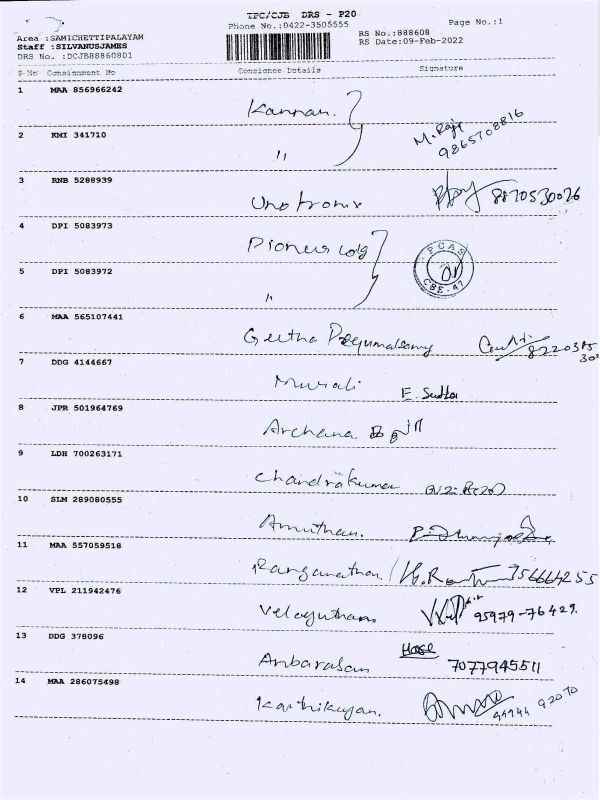 TPC/CJB DRS - P20
Phone No.:0422-3505555 Page No.:1
Area :SAMICHETTIPALAYAM RS No.:888608
Staff :SILVANUSJAMES RS Date:09-Feb-2022
DRS No. :DCJB88860801
S.No Consignment No Consignee Details Signature
1 MAA 856966242 Kannan.
M. Raje
2 KMI 341710 "
9865708816
3 RNB 5288939 Unotronix 8870530026
4 DPI 5083973 Pioneer
PCAS
CBE-47
5 DPI 5083972 "
6 MAA 565107441 Geetha
7 DDG 4144667 Murali E. Sudha
8 JPR 501964769 Archana
9 LDH 700263171 Chandrakumar
10 SLM 289080555 Amuthan.
11 MAA 557059518 Ranganathan
12 VPL 211942476 Velayutham 95979-76429.
13 DDG 378096 Anbarasan 7077945511
14 MAA 286075498 Karthikeyan.